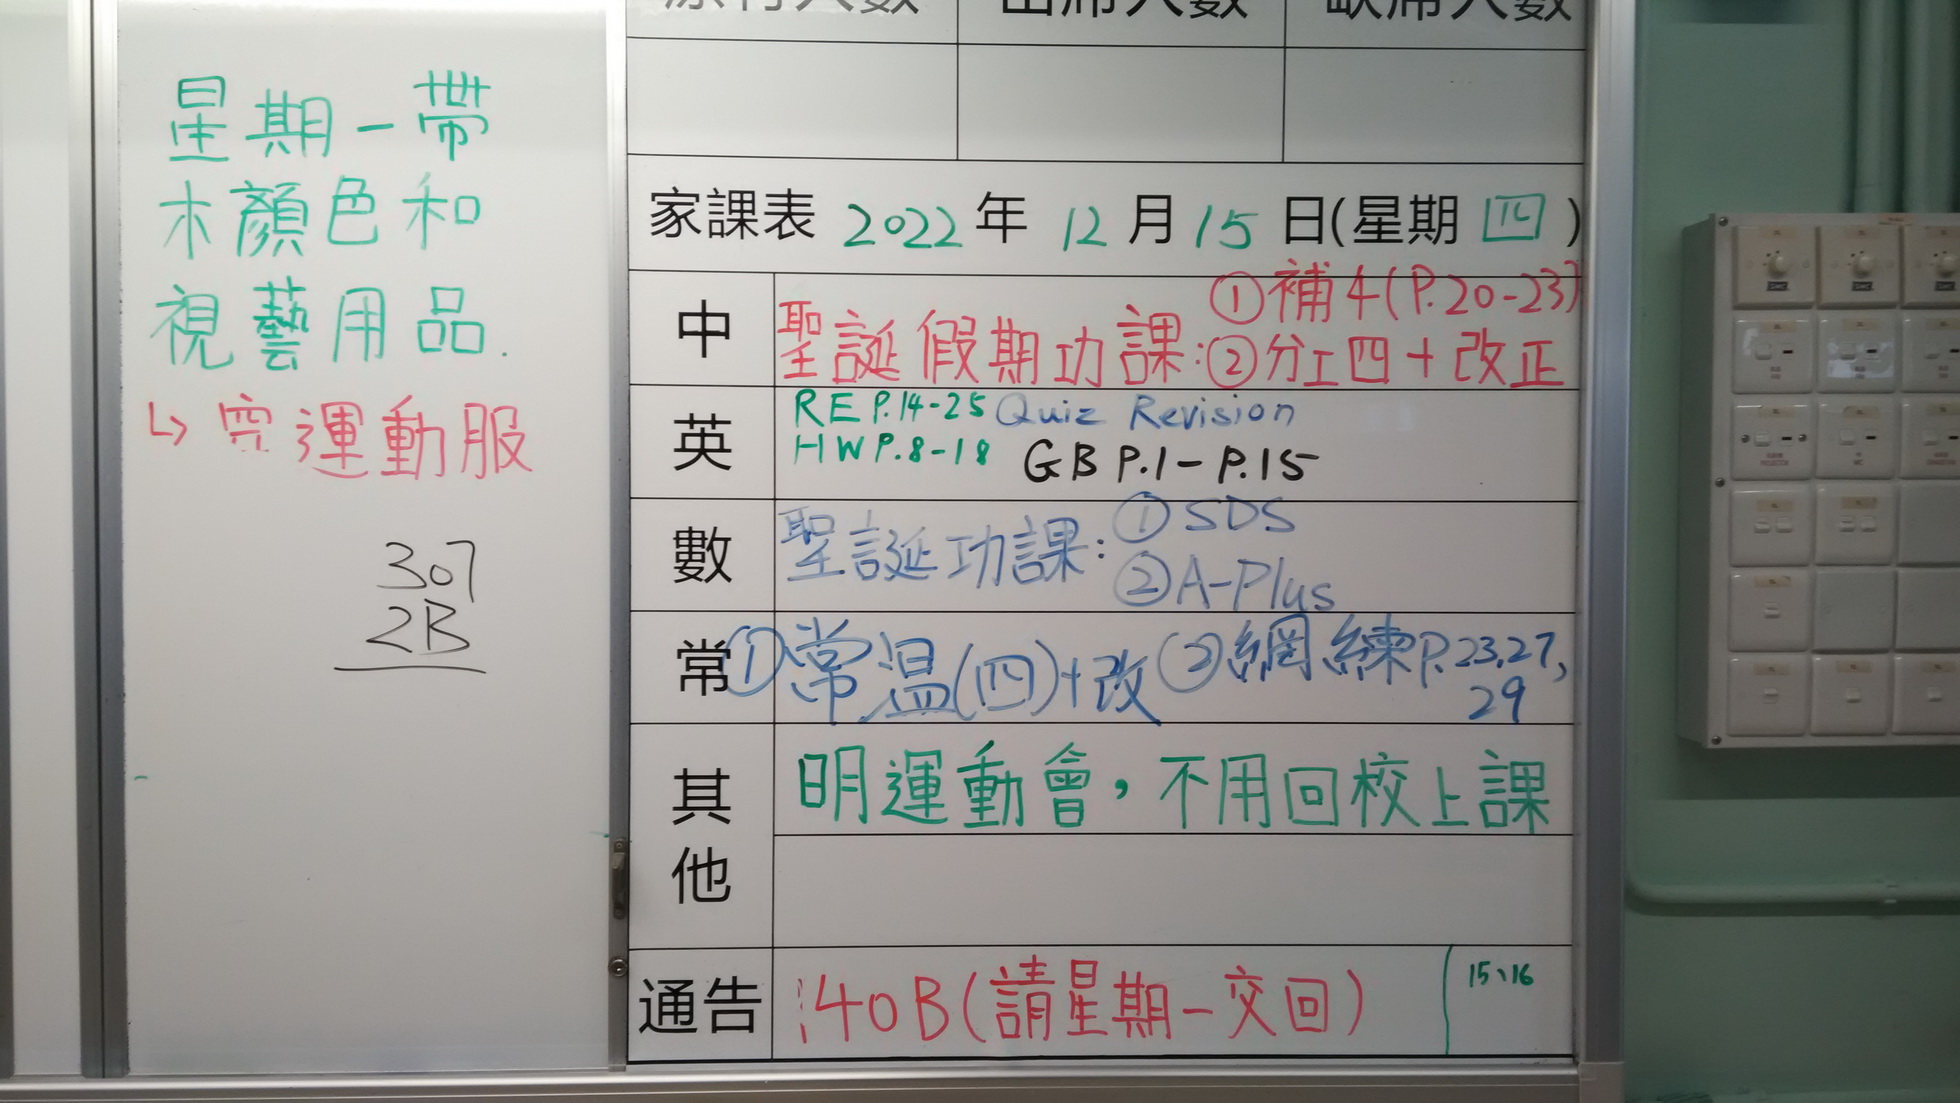 星期一帶
木顏色和
視藝用品.
↳穿運動服
307
2B
原有人數 出席人數 缺席人數
家課表 2022年 12月 15日(星期四)
中 聖誕假期功課: ①補4(P.20-23)
②分工四+改正
英 RE P.14-25 Quiz Revision
HW P.8-18 GB P.1-P.15
數 聖誕功課: ①SDS
②A-Plus
常 ①常温(四)+改 ②網練P.23,27,
29
其他 明運動會，不用回校上課
通告 140B(請星期一交回) 15、16